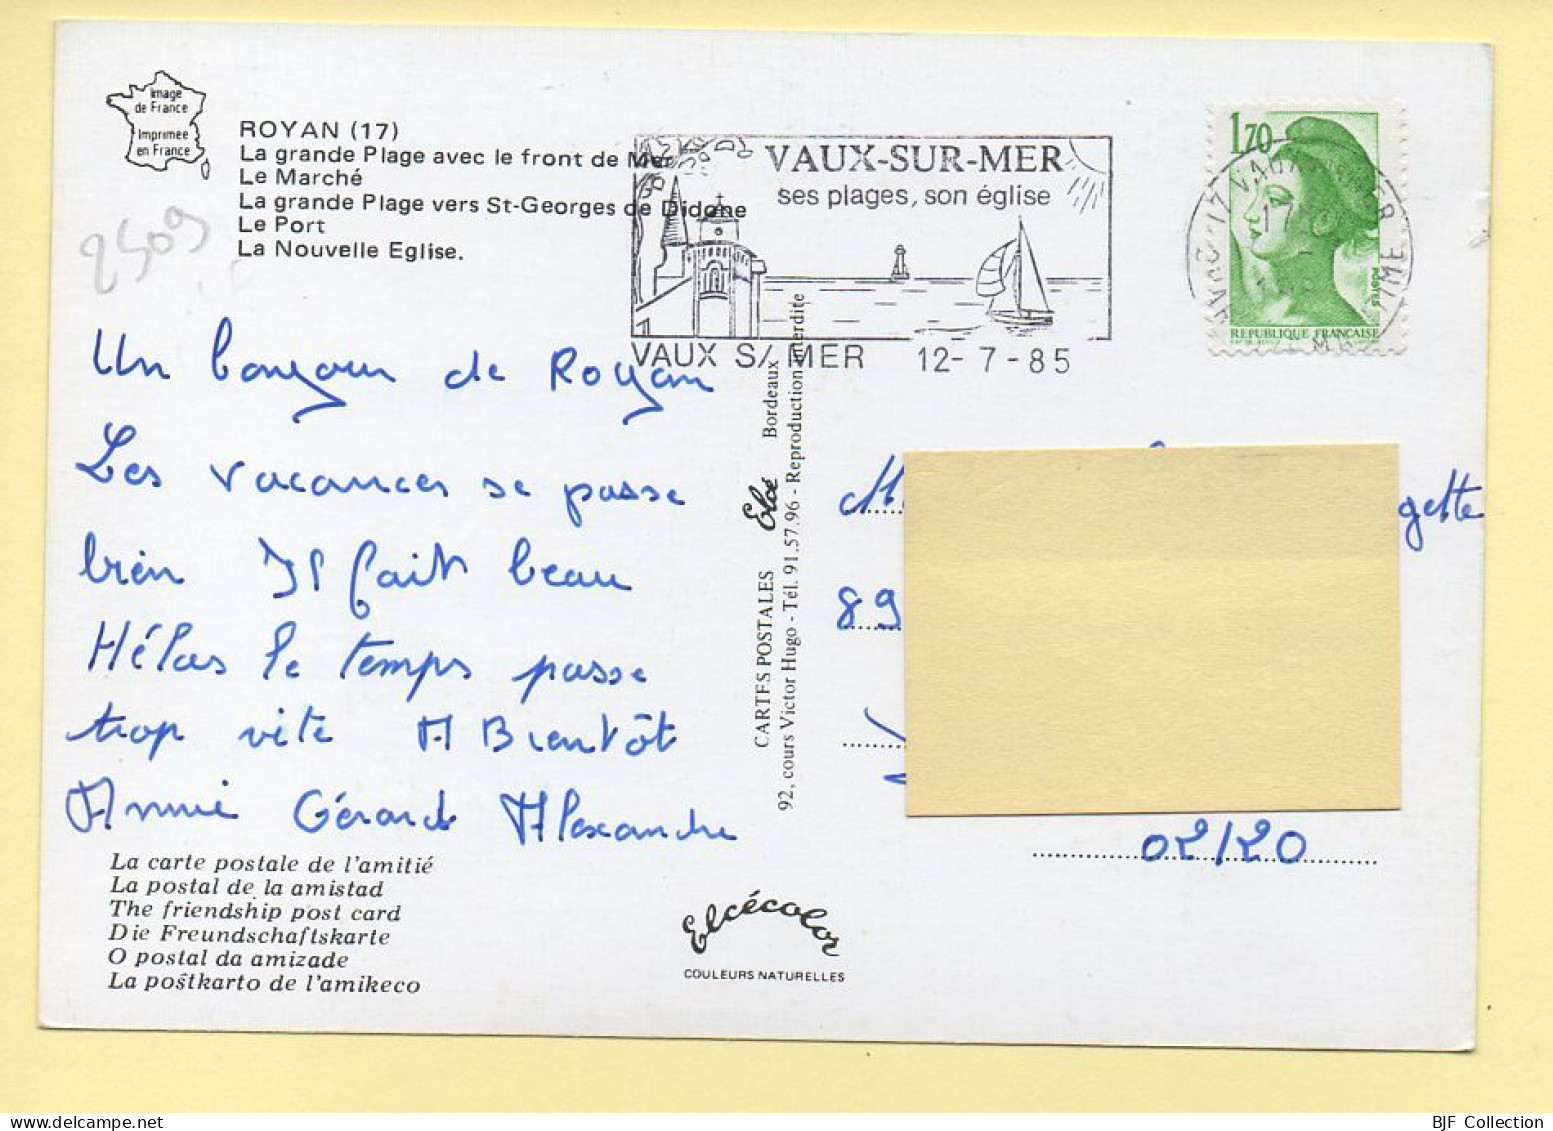 Image
de France
Imprimée
en France
ROYAN (17)
La grande Plage avec le front de Mer
Le Marché
La grande Plage vers St-Georges de Didone
Le Port
La Nouvelle Eglise.
2509
VAUX-SUR-MER
ses plages, son église
VAUX S/ MER 12-7-85
1,70
POSTES
REPUBLIQUE FRANÇAISE
Un bonjour de Royan
Les vacances se passe
bien Il fait beau
Hélas le temps passe
trop vite A Bientôt
Annie Gérard Alexandre
La carte postale de l'amitié
La postal de la amistad
The friendship post card
Die Freundschaftskarte
O postal da amizade
La poŝtkarto de l'amikeco
CARTES POSTALES Elcé Bordeaux
92, cours Victor Hugo - Tél. 91.57.96 - Reproduction interdite
Elcécolor
COULEURS NATURELLES
gette
89
02120
BJF Collection